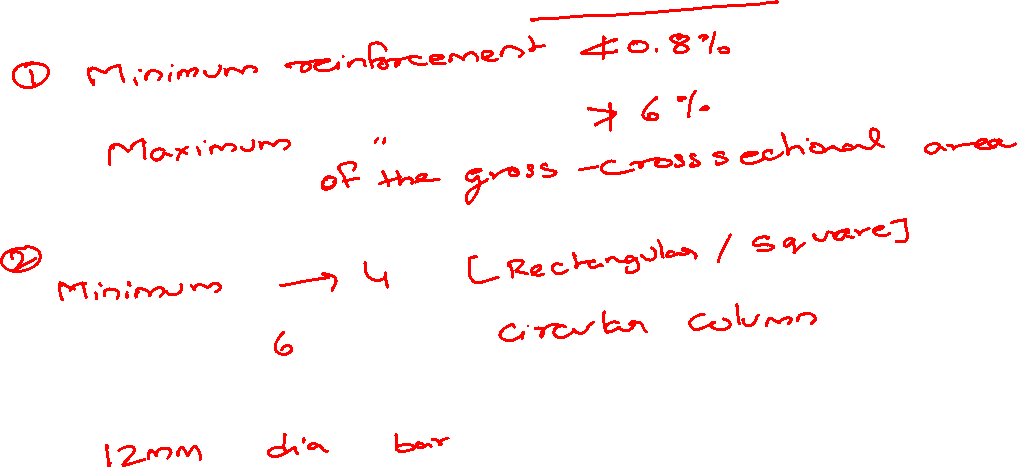 ① Minimum reinforcement ≮ 0.8%
Maximum " ≯ 6%
of the gross-cross sectional area
② Minimum → 4 [Rectangular / square]
6 circular column
12mm dia bar